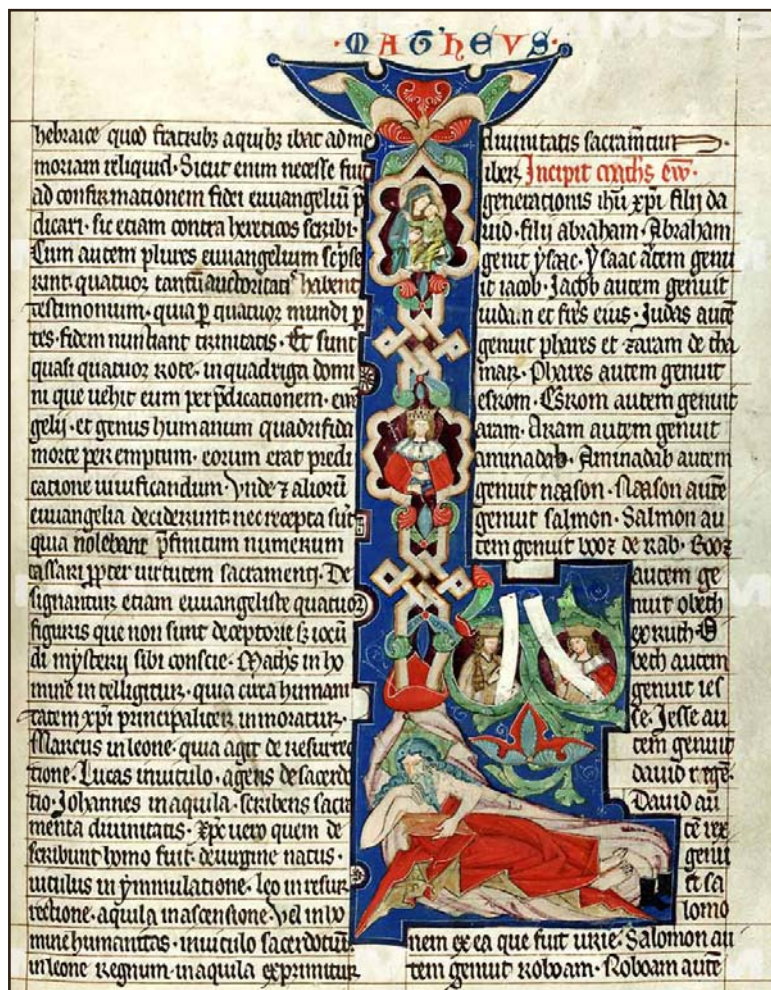 ·MATHEVS·
hebraice quod fratribz a quibz ibat ad me
moriam reliquid· Sicut enim necesse fuit
ad confirmationem fidei euuangeliū p̄
dicari· sic etiam contra hereticos scribi·
Cum autem plures euuangelium scp̄se
rint· quatuor tantū auctoritatis habent
testimonium· quia p̱ quatuor mundi p̱
tes· fidem nunstiant trinitatis· Et sunt
quasi quatuor rote· in quadriga domi
ni que uehit eum per p̄dicationem· eu
gelii· et genus humanum quadrifida
morte per emptum· eorum erat predi
catione uiuificandum· Vnde ⁊ aliorū
euuangelia deciderunt nec recepta sūt
quia nolebant p̄finitum numerum
cassari pp̱ter uirtutem sacramenti· De
signantur etiam euuangeliste quatuor
figuris que non sunt deceptorie sz iocū
di mysterii sibi conscie· Maths in ho
mine intelligitur· quia circa humani
tatem xp̄i principaliter inmoratur·
Marcus in leone· quia agit de resurre
tione· Lucas in uitulo· agens de sacerdo
tio· Johannes in aquila· scribens sacra
menta diuinitatis· Xp̄c uero quem de
scribunt homo fuit· de uirgine natus·
uitulus in ymmulatione· leo in resur
rectione· aquila in ascensione· Vel in ho
mine humanitas· in uitulo sacerdotiū
in leone regnum· in aquila exprimitur
diuinitatis sacram̄tum
iber Incipit maths ew·
generationis ihū xp̄i filij da
uid· filij abraham· Abraham
genuit ysaac· Ysaac autem genu
it iacob· Jacob autem genuit
iudam et frēs eius· Judas autē
genuit phares et zaram de tha
mar· Phares autem genuit
esrom· Esrom autem genuit
aram· Aram autem genuit
aminadab· Aminadab autem
genuit naason· Naason autē
genuit salmon· Salmon au
tem genuit booz de rab· Booz
autem ge
nuit obeth
ex ruth· O
beth autem
genuit ies
se· Jesse au
tem genuit
dauid rege·
Dauid au
tē rex
genui
t sa
lomo
nem ex ea que fuit urie· Salomon au
tem genuit roboam· Roboam autē